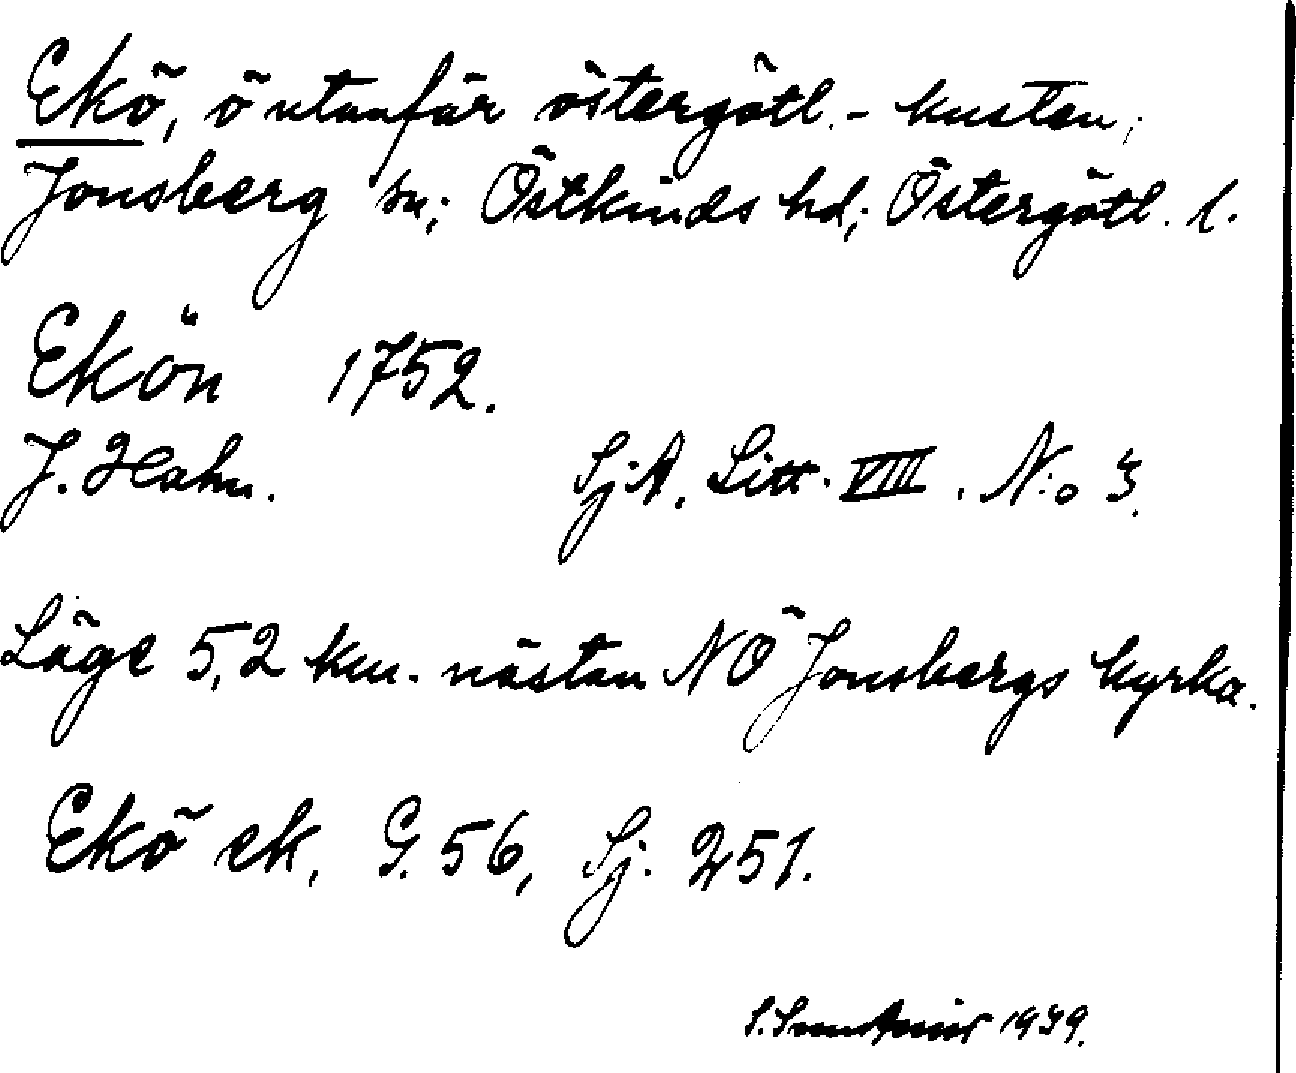 Ekö, ö utanför östergötl.-kusten;
Jonsberg sn; Östkinds hd; Östergötl. l.
Ekön 1752.
J. Hahn. SjA. Litt. VIII. N:o 3.
Läge 5,2 km. nästan NÖ Jonsbergs kyrka.
Ekö ek, G. 56, Sj. 251.
1939.